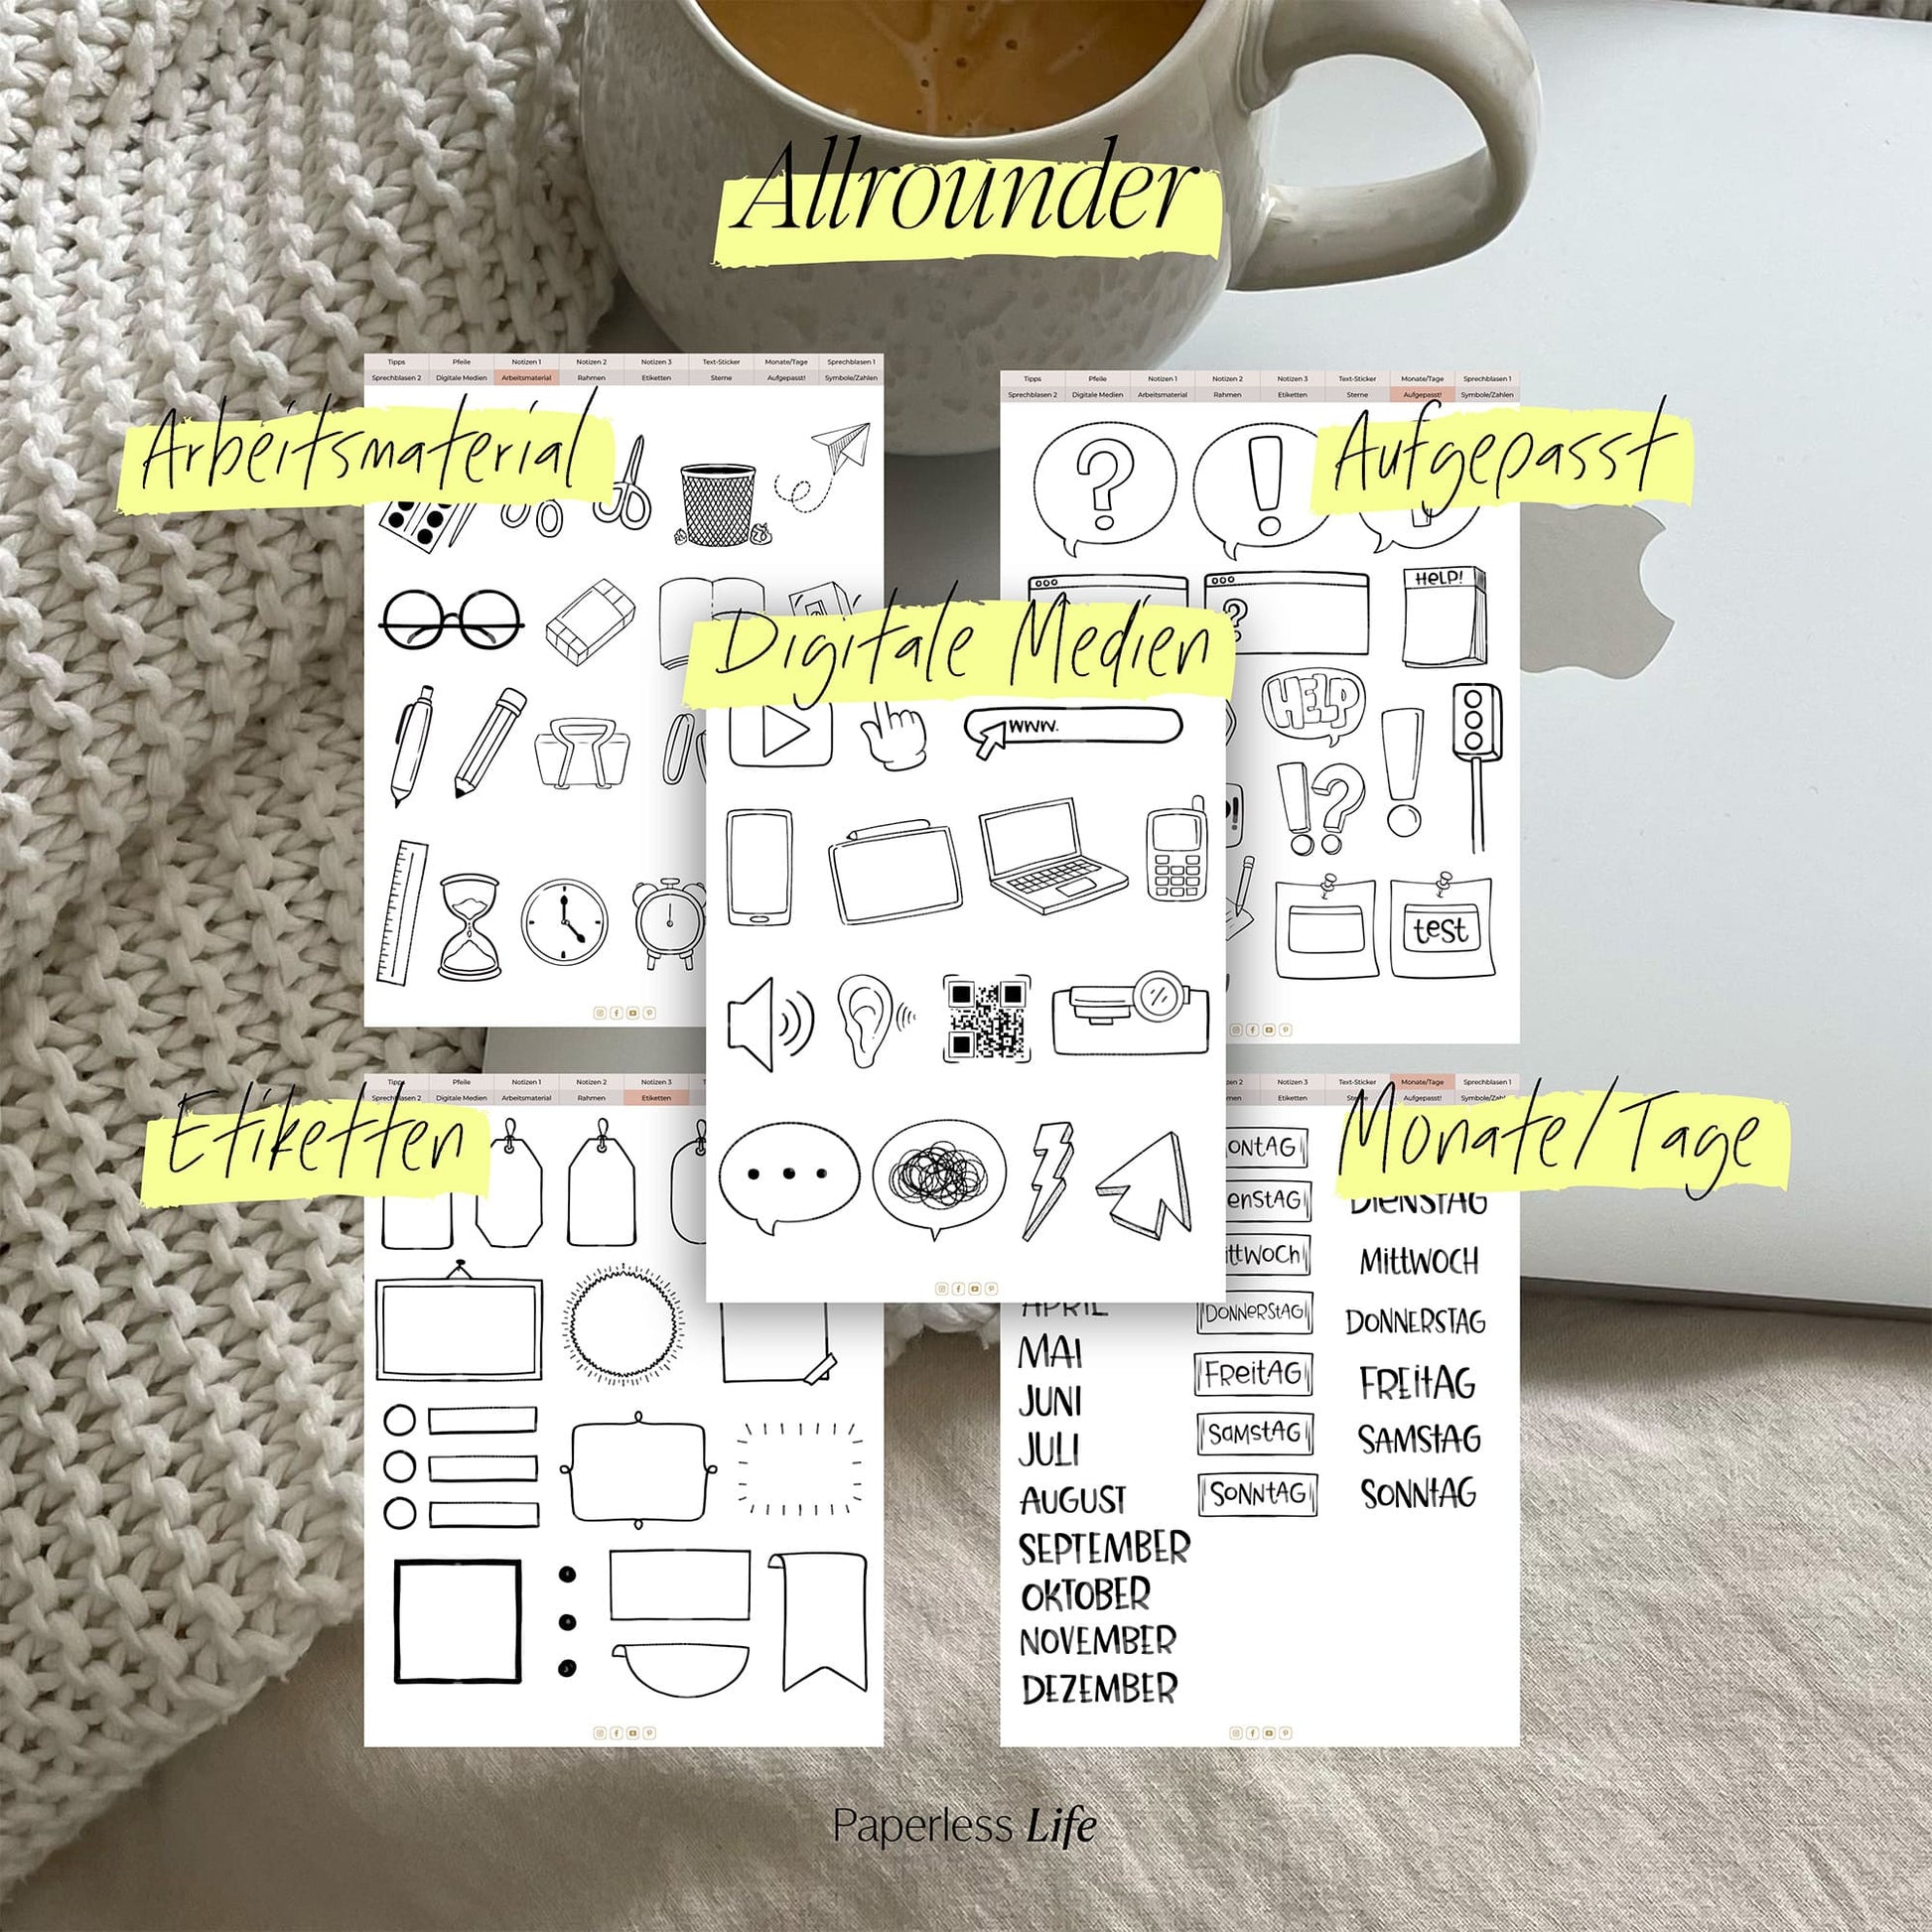 Allrounder
Tipps Pfeile Notizen 1 Notizen 2 Notizen 3 Text-Sticker Monate/Tage Sprechblasen 1
Sprechblasen 2 Digitale Medien Arbeitsmaterial Rahmen Etiketten Sterne Aufgepasst! Symbole/Zahlen
Arbeitsmaterial
Tipps Pfeile Notizen 1 Notizen 2 Notizen 3 Text-Sticker Monate/Tage Sprechblasen 1
Sprechblasen 2 Digitale Medien Arbeitsmaterial Rahmen Etiketten Sterne Aufgepasst! Symbole/Zahlen
Aufgepasst
? !
HELP!
?
HELP
!
!?
test
Digitale Medien
www.
Tipps Pfeile Notizen 1 Notizen 2 Notizen 3
Sprechblasen 2 Digitale Medien Arbeitsmaterial Rahmen Etiketten
Etiketten
Notizen 3 Text-Sticker Monate/Tage Sprechblasen 1
Etiketten Aufgepasst!
Monate/Tage
APRIL
MAI
JUNI
JULI
AUGUST
SEPTEMBER
OKTOBER
NOVEMBER
DEZEMBER
DONNERSTAG
FREITAG
SAMSTAG
SONNTAG
DIENSTAG
MITTWOCH
DONNERSTAG
FREITAG
SAMSTAG
SONNTAG
Paperless Life